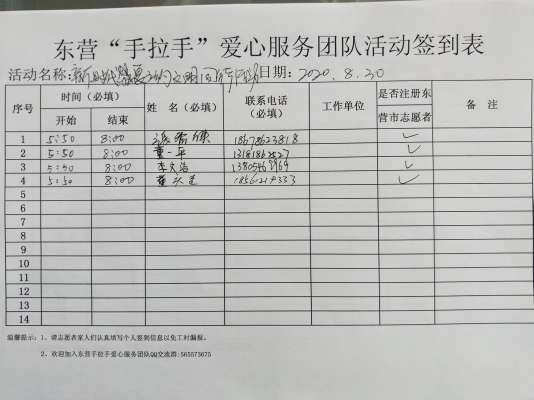 东营“手拉手”爱心服务团队活动签到表
活动名称: 日期: 2020.8.30
序号 时间（必填） 姓 名（必填） 联系电话（必填） 工作单位 是否注册东营市志愿者 备 注
开始 结束
1 5:50 8:00 18678623818 ✓
2 5:50 8:00 董一平 ✓
3 5:50 8:00 李文浩 ✓
4 5:50 8:00 ✓
5
6
7
8
9
10
11
12
13
14
温馨提示：1、请志愿者家人们认真填写个人签到信息以免工时漏报。
2、欢迎加入东营手拉手爱心服务团队QQ交流群:565573675